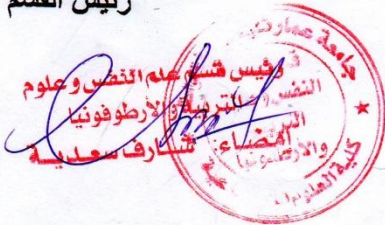 رئيس القسم
رئيس قسم علم النفس وعلوم
التربية والأرطوفونيا
إمضاء: شارف سعدية
جامعة عمار
النفس
والأرطوفونيا
كلية العلوم